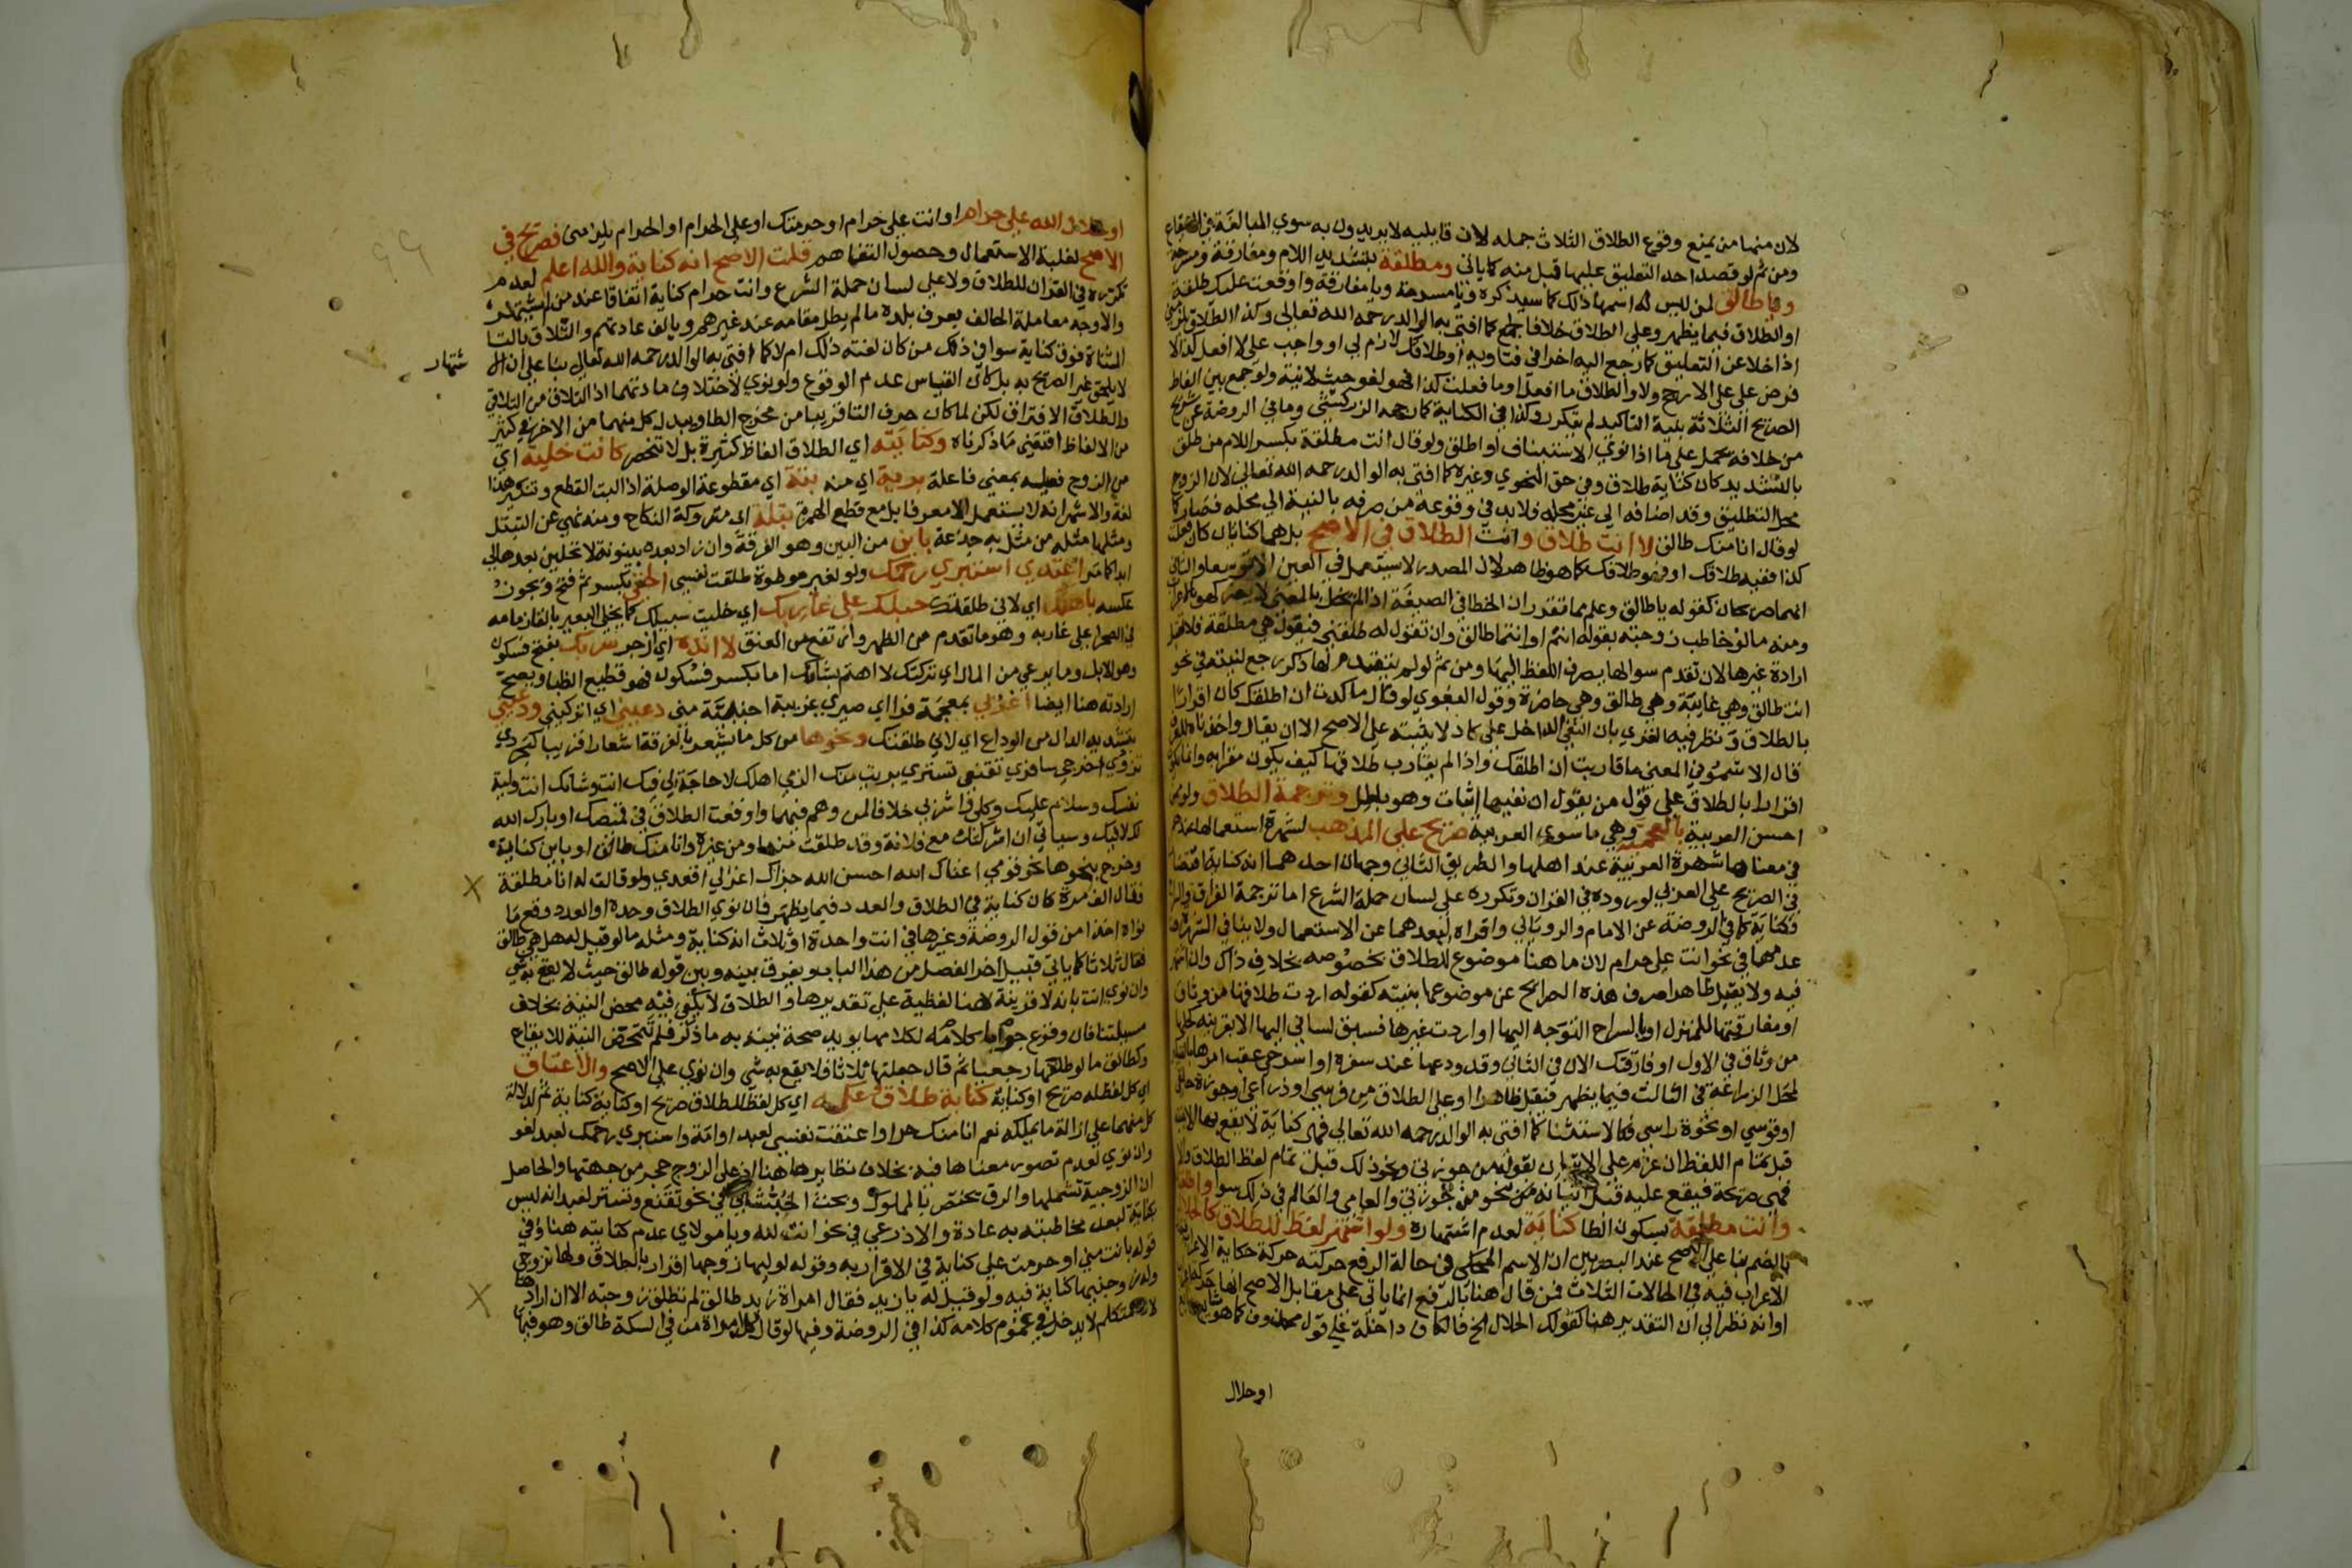 لان منهما من يمنع وقوع الطلاق الثلاث جمله لان قايليه لا يريدون به سوي المبالغة في
ومن ثم لو قصد احد التعليق عليها قبل منه كما ياتي ومطلقة بتشديد اللام ومفارقة ومسرحة
ويا طالق لمن ليس اسمها ذلك كما سيذكره ويا مسرحة ويا مفارقة واوقعت عليك طلقة
او الطلاق فيما يظهر وعلي الطلاق خلافا لجمع كما افتي به الوالد رحمه الله تعالي وكذا الطلاق يلزمني
اذا خلا عن التعليق كما رجع اليه اخرا في فتاويه او طلاقك لازم لي او واجب علي لا افعل كذا لا
فرض علي علي الارجح ولا والطلاق ما افعل او ما فعلت كذا فهو لغو حيث لا نية ولو جمع بين الفاظ
الصريح الثلاثة بنية التاكيد لم يتكرر وكذا في الكناية كما رجحه الزركشي وما في الروضة عن شريح
من خلافه يحمل علي ما اذا نوي الاستيناف او اطلق ولو قال انت مطلقة بكسر اللام من طلق
بالتشديد كان كناية طلاق في حق النحوي وغيره كما افتي به الوالد رحمه الله تعالي لان الزوج
محل التطليق وقد اضافه الي غير محله فلا بد في وقوعه من صرفه بالنية الي محله فصار كما
لو قال انا منك طالق لا انت طلاق وانت الطلاق في الاصح بل هما كنايتان كان فعلت
كذا ففيه طلاقك او فهو طلاقك كما هو ظاهر لان المصدر لا يستعمل في العين الا توسعا والثاني
انهما صريحان كقوله يا طالق وعلم مما تقدر ان الخطا في الصيغة اذا لم يخل بالمعني لا يضر كهو بالاعراب
ومنه ما لو خاطب زوجته بقوله انتم او انتما طالق وان تقول له طلقني فيقول هي مطلقة فلا يقبل
ارادة غيرها لان تقدم سوالها يصرف اللفظ اليها ومن ثم لو لم يتقدم لها ذكر رجع لنيته في نحو
انت طالق وهي غايبة وهي طالق وهي حاضرة وقول البغوي لو قال ما كدت ان اطلقك كان اقرارا
بالطلاق ونظر فيه الغزي بان النفي الداخل علي كاد لا يثبته علي الاصح الا ان يقال واخذناه للعرف
قال الاشموني المعني ما قاربت ان اطلقك واذا لم يقارب طلاقها كيف يكون مقرا به وانما يكون
اقرارا بالطلاق علي قول من يقول ان نفيها اثبات وهو باطل وترجمة الطلاق ولو من
احسن العربية بالعجمية وهي ما سوي العربية صريح علي المذهب لشهرة استعمالها عندهم
في معناها شهرة العربية عند اهلها والطريق الثاني وجهان احدهما انه كناية اقتصارا
في الصريح علي العربي لوروده في القران وتكرره علي لسان حملة الشرع اما ترجمة الفراق والسراح
فكناية كما في الروضة عن الامام والروياني واقراه لبعدهما عن الاستعمال ولا ينافي الشهرة
عدمها في نحو انت علي حرام لان ما هنا موضوع للطلاق بخصوصه بخلاف ذاك وان اشتهر
فيه ولا يقبل ظاهرا صرف هذه الصرايح عن موضوعها بنيته كقوله اردت طلاقها من وثاق
او مفارقتها للمنزل او بالسراح التوجه اليها او اردت غيرها فسبق لساني اليها الا بقرينة كحلها
من وثاق في الاول او فارقتك الان في الثاني وقد ودعها عند سفره او اسرحي عقب امرها بالتبكير
لمحل الزراعة في الثالث فيما يظهر فيقبل ظاهرا وعلي الطلاق من فرسي او ذراعي
او قوسي او نخوة راسي فكالاستثنا كما افتي به الوالد رحمه الله تعالي فهو كناية لا يقع بها الا بنية
قبل تمام اللفظ ان عزم علي الاتيان بقوله من حوزتي ونحو ذلك قبل تمام لفظ الطلاق والا
فهي صريحة فيقع عليه قبل اتيانه من نحو من حوزتي والعامي والعالم في ذلك سوا واطلقتك
وانت مطلقة بسكون الطا كناية لعدم اشتهاره ولو اشتهر لفظ للطلاق كالحلال
بالضم بنا علي الاصح عند البصريين ان الاسم المحكي في حالة الرفع حركته حركة حكاية لا اعراب
الاعراب فيه في الحالات الثلاث فمن قال هنا بالرفع انما ياتي علي مقابل الاصح انها حركة
او انه نظر الي ان التقدير هنا كقولك الحلال الخ فالكاف داخلة علي قول محذوف كما هو
او حلال
او حلال الله علي حرام او انت علي حرام او حرمتك او علي الحرام او الحرام يلزمني فصريح في
الاصح لغلبة الاستعمال وحصول التفاهم قلت الاصح انه كناية والله اعلم لعدم
تكرره في القران للطلاق ولا علي لسان حملة الشرع وانت حرام كناية اتفاقا عند من لم يشتهر
والاوجه معاملة الحالف بعرف بلده ما لم يطل مقامه عند غيرهم ويالف عادتهم والتلاق بالتا
المثناة فوق كناية سوا في ذلك من كان لغته ذلك ام لا كما افتي به الوالد رحمه الله تعالي بنا علي ان ال
شتهار
لا يلحق غير الصريح به بل كان القياس عدم الوقوع ولو نوي لاختلاف مادتهما اذ التلاق من التلاقي
والطلاق الافتراق لكن لما كان حرف التا قريبا من مخرج الطا ويبدل كل منهما من الاخر في كثير
من الالفاظ اقتضي ما ذكرناه وكنايته اي الطلاق الفاظ كثيرة بل لا تنحصر كانت خلية اي
من الزوج فعيلة بمعني فاعلة برية اي منه بتة اي مقطوعة الوصلة اذ البت القطع وتنكير هذا
لغة والاشهر انه لا يستعمل الا معرفا بال مع قطع الهمزة بتلة اي متروكة النكاح ومنه نهي عن التبتل
ومثلها مثلة من مثل به جدعه باين من البين وهو الفرقة وان زاد بعده بينونة لا تحلين بعدها لي
ابدا كما مر اعتدي استبري رحمك ولو لغير موطوة طلقت نفسي الحقي بكسر ثم فتح ويجوز
عكسه باهلك اي لاني طلقتك حبلك علي غاربك اي خليت سبيلك كما يخلي البعير بالقا زمامه
في الصحرا علي غاربه وهو ما تقدم من الظهر وارتفع من العنق لا انده اي ازجر سربك بفتح فسكون
وهو الابل وما يرعي من المال اي تركتك لا اهتم بشانك اما بكسر فسكون فهو قطيع الظبا ويصح
ارادته هنا ايضا اعزبي بمعجمة فزا اي صيري غريبة اجنبية مني دعيني اي اتركيني ودعيني
بتشديد الدال من الوداع اي لاني طلقتك ونحوها من كل ما يشعر بالفرقة اشعارا قريبا كتجردي
تزودي اخرجي سافري تقنعي تستري بريت منك الزمي اهلك لا حاجة لي فيك انت وشانك انت ولية
نفسك وسلام عليك وكلي واشربي خلافا لمن وهم فيهما واوقعت الطلاق في قميصك او بارك الله
لك لا فيك وسياتي ان اشركتك مع فلانة وقد طلقت منه او من غيره وانا منك طالق او باين كناية
وخرج بنحوها نحو قومي اغناك الله احسن الله جزاك اغزلي اقعدي ولو قالت له انا مطلقة
فقال الف مرة كان كناية في الطلاق والعدد فيما يظهر فان نوي الطلاق وحده او العدد وقع ما
نواه اخذا من قول الروضة وغيرها في انت واحدة او ثلاث انه كناية ومثله ما لو قيل له هل هي طالق
فقال ثلاثا كما ياتي قبيل اخر الفصل من هذا الباب ويفرق بينه وبين قوله طالق حيث لا يقع به شي
وان نوي انت بانه لا قرينة هنا لفظية علي تقديرها والطلاق لا يكفي فيه محض النية بخلاف
مسيلتنا فان وقوع كلامه جوابا لكلامها يويد صحة نيته به ما ذكر فلم تتمحض النية للايقاع
وكطالق ما لو طلقها رجعيا ثم قال جعلتها ثلاثا فلا يقع به شي وان نوي علي الاصح والاعتاق
اي كل لفظ له صريح او كناية كناية طلاق وعكسه اي كل لفظ للطلاق صريح او كناية كناية ثم لدلالة
كل منهما علي ازالة ما يملكه نعم انا منك حر او اعتقت نفسي لعبد او امة واستبري رحمك لعبد لغو
وان نوي لعدم تصور معناها فيه بخلاف نظايرها هنا اذ علي الزوج حجر من جهتها والحاصل
ان الزوجية تشملهما والرق يختص بالمملوك وبحث في نحو تقنع وتستر لعبد انه ليس
بكناية لبعد مخاطبته به عادة والاذرعي في نحو انت لله ويا مولاي عدم كنايته هنا وفي
قوله بانت مني او حرمت علي كناية في الاقرار به وقوله لوليها زوجها اقرار بالطلاق ولها تزوجي
وله زوجنيها كناية فيه ولو قيل له يا زيد فقال امراة زيد طالق لم تطلق زوجته الا ان ارادها
لان المتكلم لا يدخل في عموم كلامه كذا في الروضة وفيها لو قال امراة من في السكة طالق وهو فيها